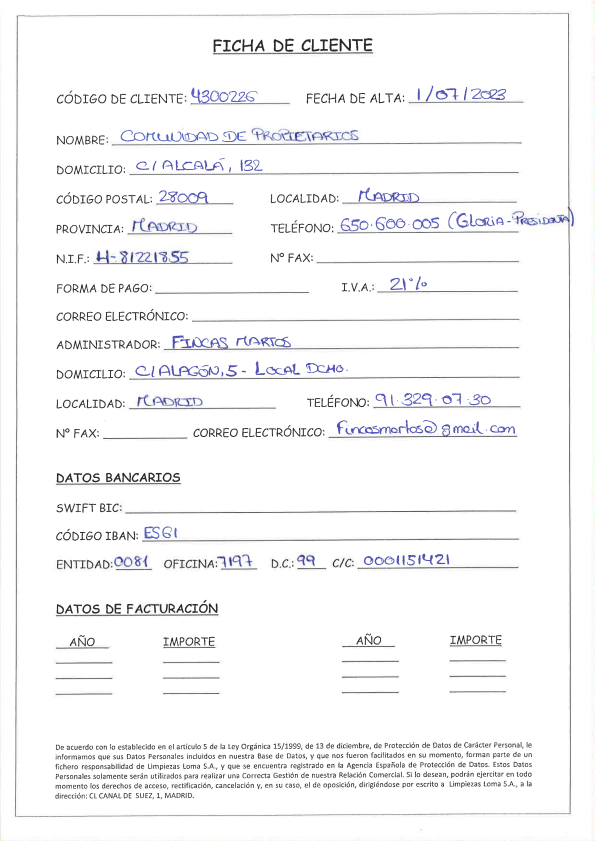 FICHA DE CLIENTE
CÓDIGO DE CLIENTE: 4300226 FECHA DE ALTA: 1/07/2023
NOMBRE: COMUNIDAD DE PROPIETARIOS
DOMICILIO: C/ALCALÁ, 132
CÓDIGO POSTAL: 28009 LOCALIDAD: MADRID
PROVINCIA: MADRID TELÉFONO: 650·600·005 (GLORIA-PRESIDENTA)
N.I.F.: H-81221855 Nº FAX:
FORMA DE PAGO: I.V.A.: 21%
CORREO ELECTRÓNICO:
ADMINISTRADOR: FINCAS MARTOS
DOMICILIO: C/ALAGÓN, 5 - LOCAL DCHO.
LOCALIDAD: MADRID TELÉFONO: 91·329·07·30
Nº FAX: CORREO ELECTRÓNICO: fincasmartos@gmail.com
DATOS BANCARIOS
SWIFT BIC:
CÓDIGO IBAN: ES61
ENTIDAD: 0081 OFICINA: 7197 D.C.: 99 C/C: 0001151421
DATOS DE FACTURACIÓN
AÑO IMPORTE AÑO IMPORTE
De acuerdo con lo establecido en el artículo 5 de la Ley Orgánica 15/1999, de 13 de diciembre, de Protección de Datos de Carácter Personal, le
informamos que sus Datos Personales incluidos en nuestra Base de Datos, y que nos fueron facilitados en su momento, forman parte de un
fichero responsabilidad de Limpiezas Loma S.A., y que se encuentra registrado en la Agencia Española de Protección de Datos. Estos Datos
Personales solamente serán utilizados para realizar una Correcta Gestión de nuestra Relación Comercial. Si lo desean, podrán ejercitar en todo
momento los derechos de acceso, rectificación, cancelación y, en su caso, el de oposición, dirigiéndose por escrito a Limpiezas Loma S.A., a la
dirección: CL CANAL DE SUEZ, 1, MADRID.